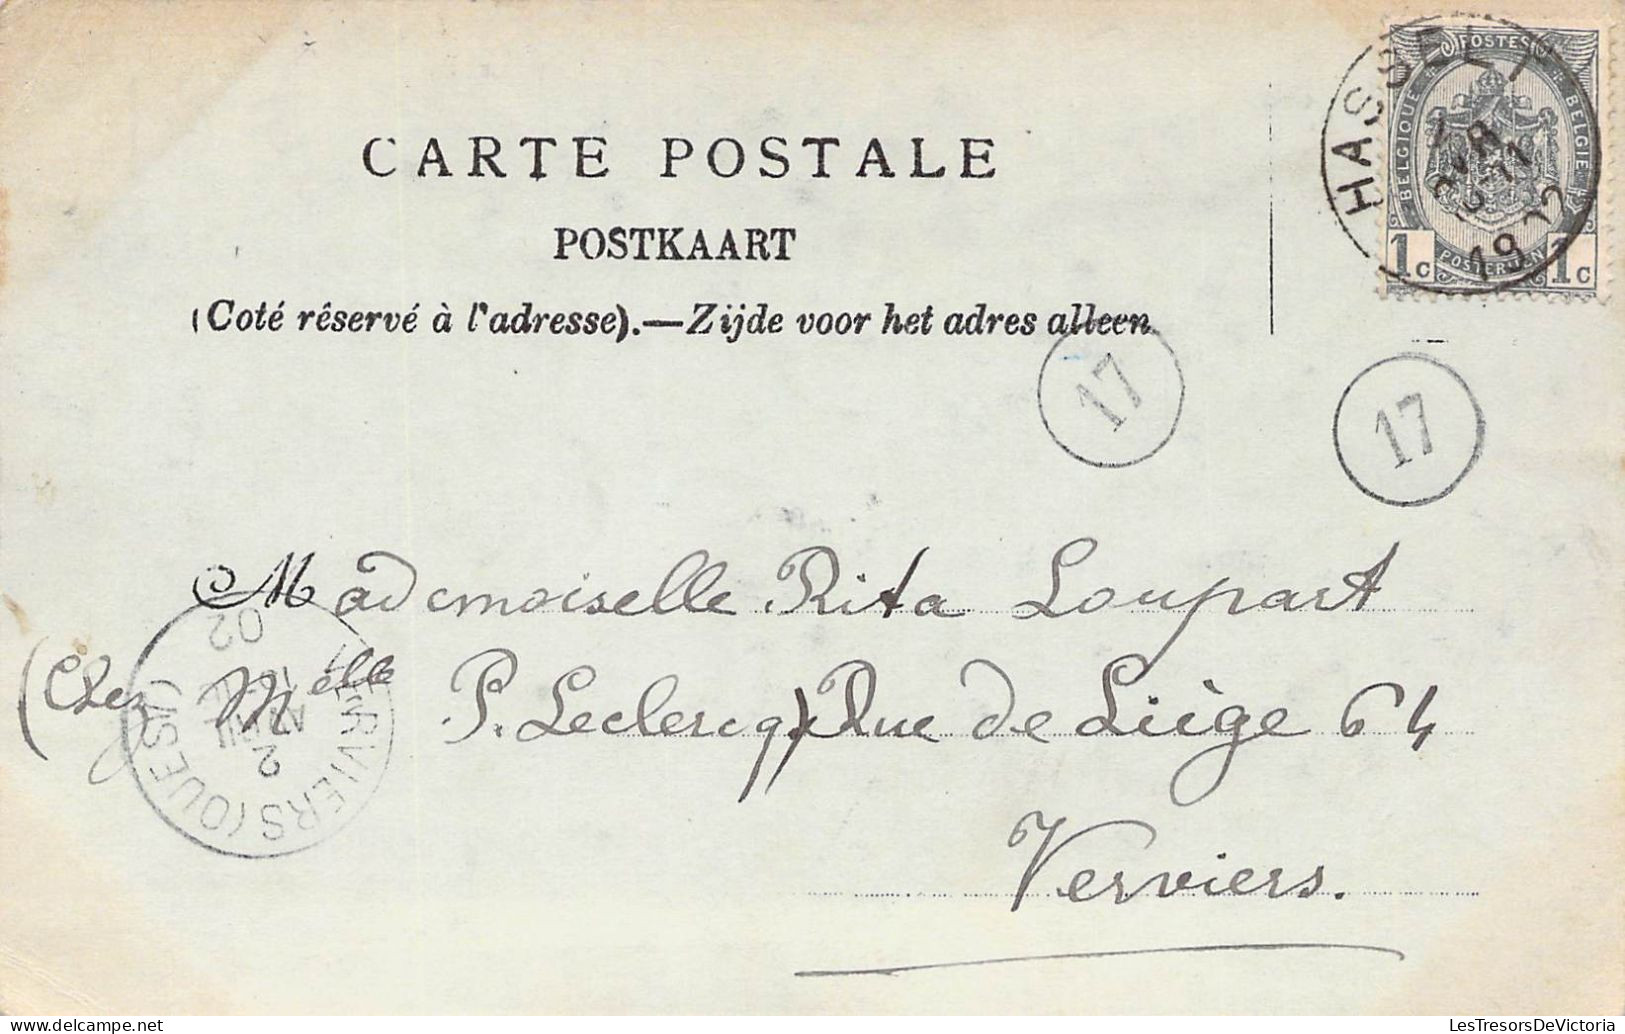 HASSELT
1902
POSTES
BELGIQUE
BELGIE
1c
1c
POSTERIJEN
CARTE POSTALE
POSTKAART
(Coté réservé à l'adresse).—Zijde voor het adres alleen
17
17
Mademoiselle Rita Loupart
(Chez Melle P. Leclercq) Rue de Liège 64
Verviers.
VERVIERS (OUEST)
2
AVRIL
02
LesTresorsDeVictoria